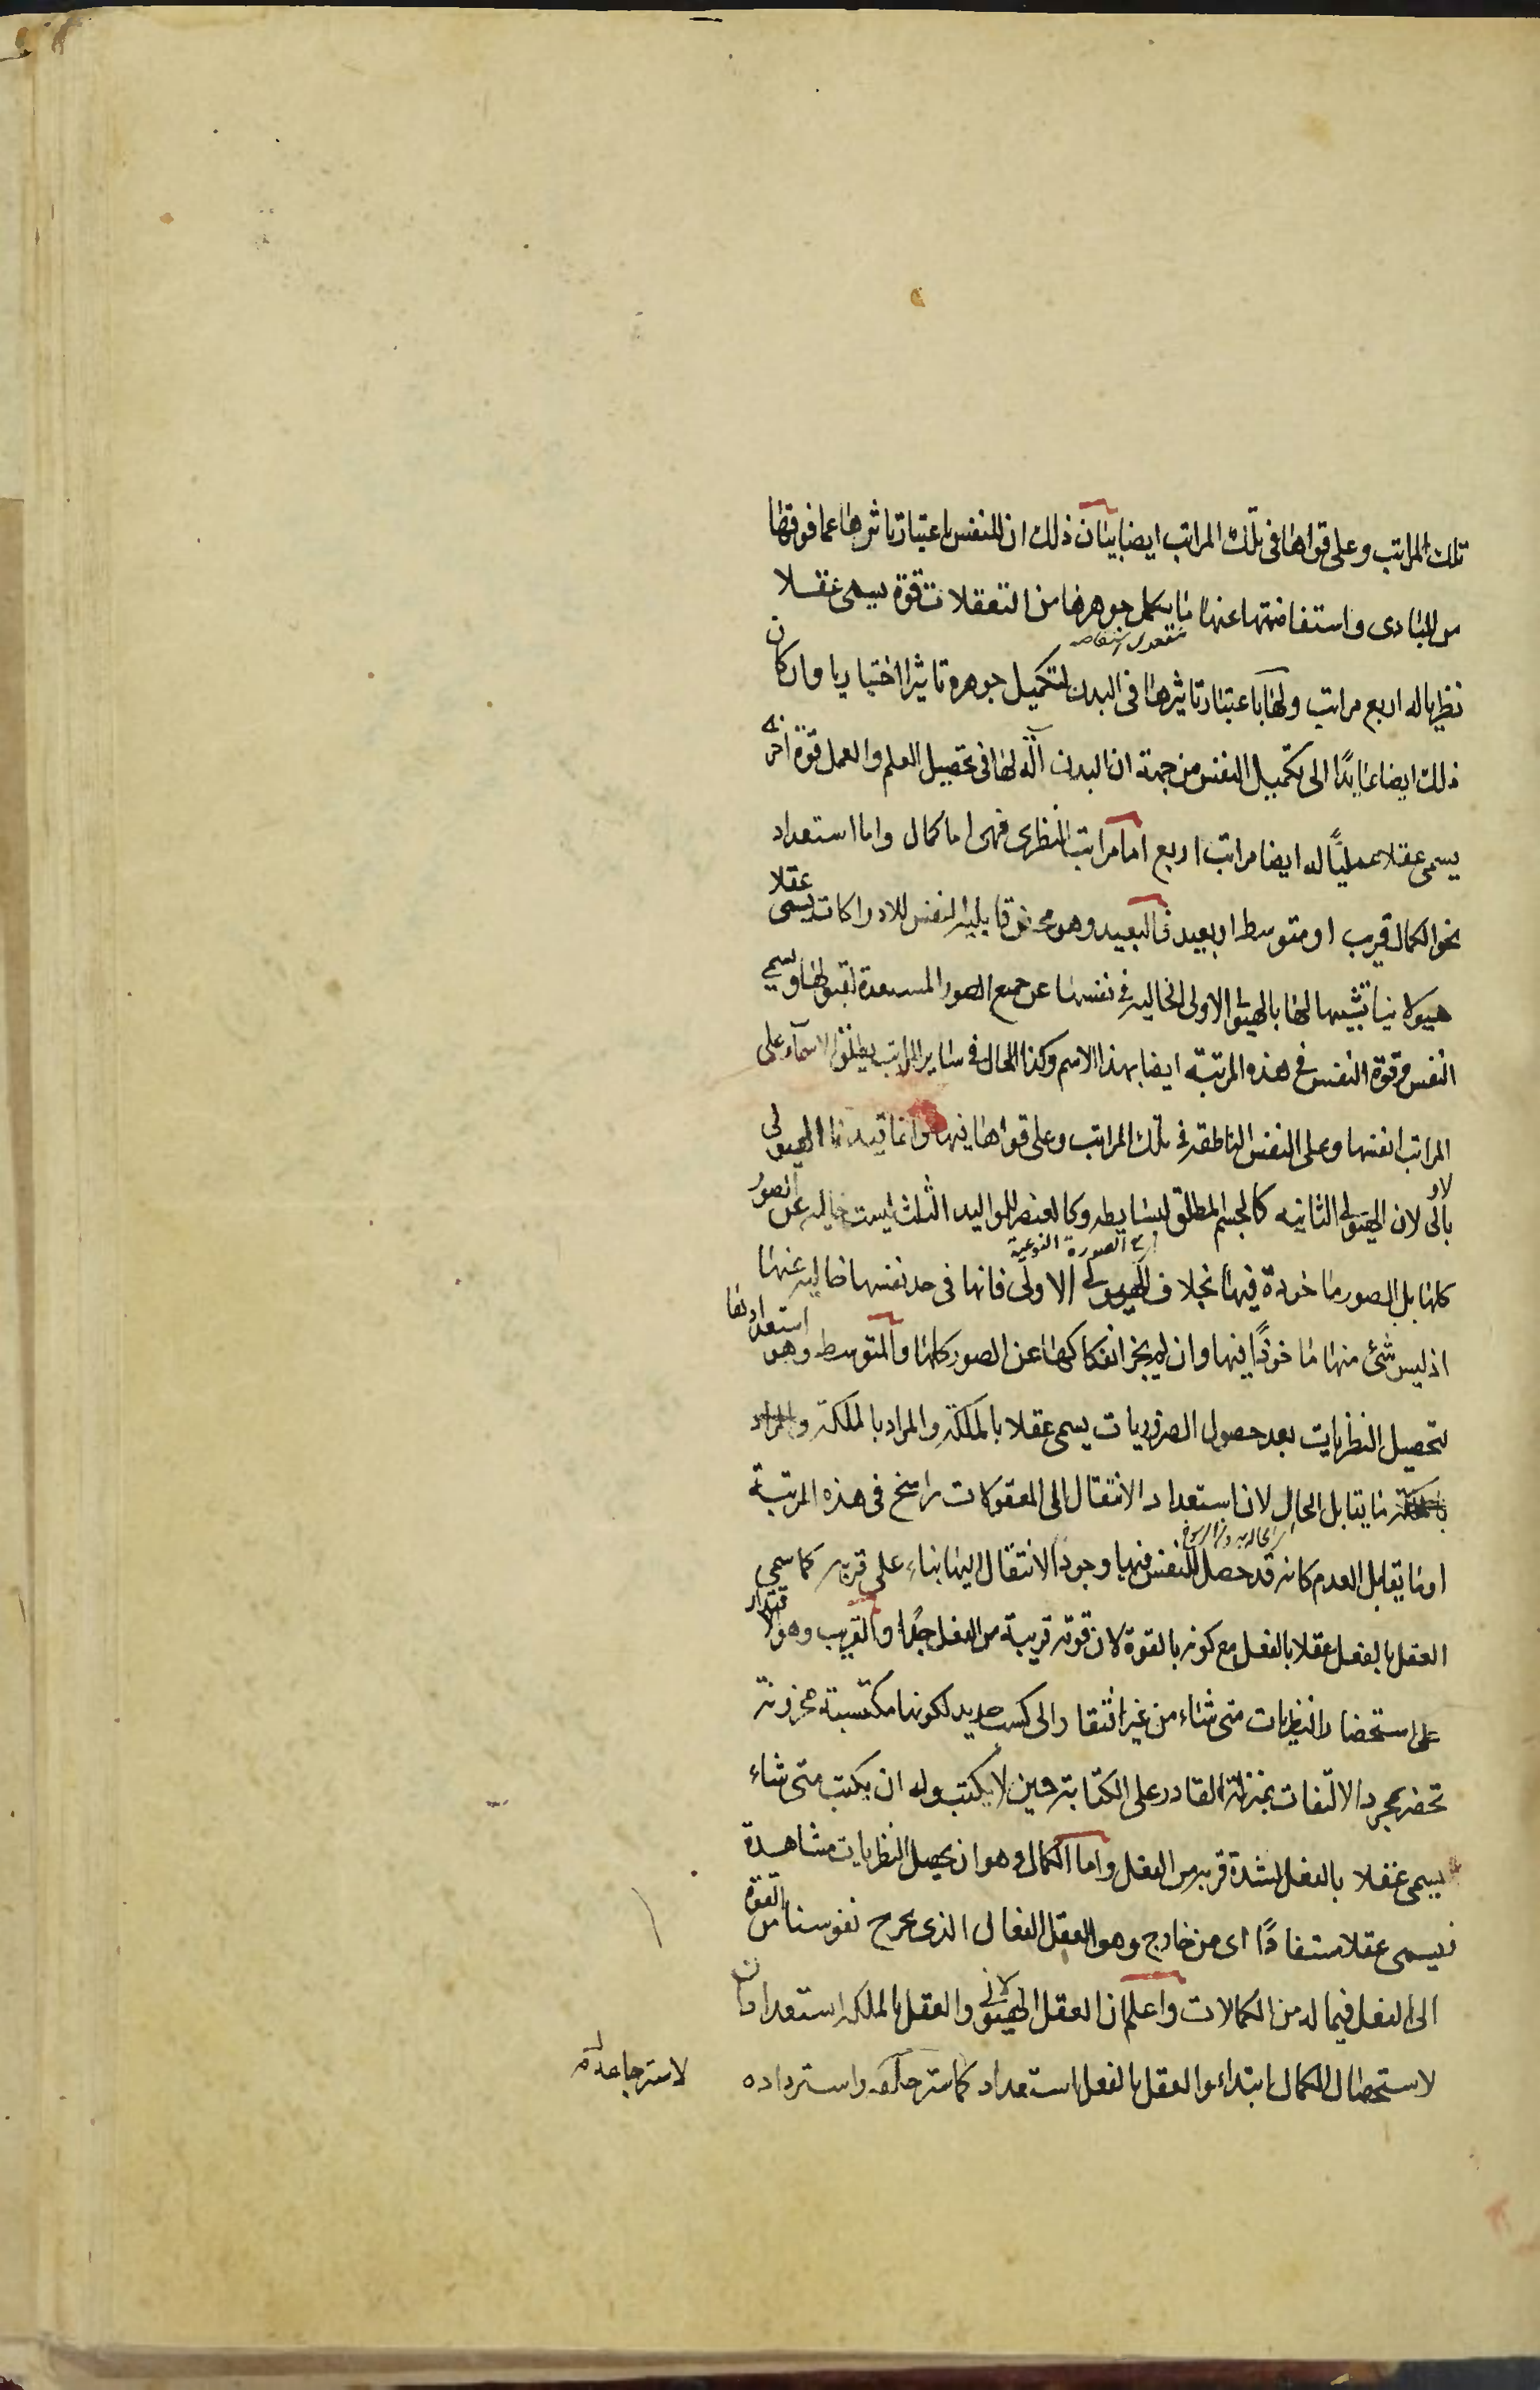 تلك المراتب وعلى قواها فى تلك المراتب ايضا بيان ذلك ان للنفس باعتبار تاثرها عما فوقها
من المبادى واستفاضتها عنها ما يكمل جوهرها من التعقلات قوة يسمى عقلا
نظريا له اربع مراتب ولها باعتبار تاثيرها فى البدن لتكميل جوهره تاثيرا اختياريا وان كان
ذلك ايضا عايدًا الى تكميل النفس من جهة ان البدن آلة لها فى تحصيل العلم والعمل قوة اخرى
يسمى عقلا عمليًا له ايضا مراتب اربع اما مراتب النظرى فهى اما كمال واما استعداد
نحو الكمال قريب او متوسط او بعيد فالبعيد وهو محض قابلية النفس للادراكات يسمى عقلا
هيولانيا تشبيها لها بالهيولى الاولى الخالية فى نفسها عن جميع الصور المستعدة لقبولها ويسمى
النفس وقوة النفس فى هذه المرتبة ايضا بهذا الاسم وكذا الحال فى ساير المراتب يطلق الاسماء على
المراتب انفسها وعلى النفس الناطقة فى تلك المراتب وعلى قواها فيها وانما قيدنا الهيولى
بالاولى لان الهيولى الثانية كالجسم المطلق لبسايطه وكالعنصر للمواليد الثلث ليست خالية عن الصور
كلها بل الصور ماخوذة فيها بخلاف الهيولى الاولى فانها فى حد نفسها خالية عنها
اى الصورة النوعية
اذ ليس شئ منها ماخوذًا فيها وان لم يجز انفكاكها عن الصور كلها والمتوسط وهو استعدادها
لتحصيل النظريات بعد حصول الضروريات يسمى عقلا بالملكة والمراد بالملكة والمراد
بالملكة ما يقابل الحال لان استعداد الانتقال الى المعقولات راسخ فى هذه المرتبة
او ما يقابل العدم كانه قد حصل للنفس فيها وجود الانتقال اليها بناء على قربه كما سمى
العقل بالفعل عقلا بالفعل مع كونه بالقوة لان قوته قريبة من الفعل جدًا والقريب وهو الاقتدار
على استحضار النظريات متى شاء من غير افتقار الى كسب جديد لكونها مكتسبة مخزونة
تحضر بمجرد الالتفات بمنزلة القادر على الكتابة حين لا يكتب وله ان يكتب متى شاء
يسمى عقلا بالفعل لشدة قربه من الفعل واما الكمال وهو ان يحصل النظريات مشاهدة
فيسمى عقلا مستفادًا اى من خارج وهو العقل الفعال الذى يخرج نفوسنا من القوة
الى الفعل فيما له من الكمالات واعلم ان العقل الهيولانى والعقل بالملكة استعدادان
لاستحصال الكمال ابتداء والعقل بالفعل استعداد واسترداده